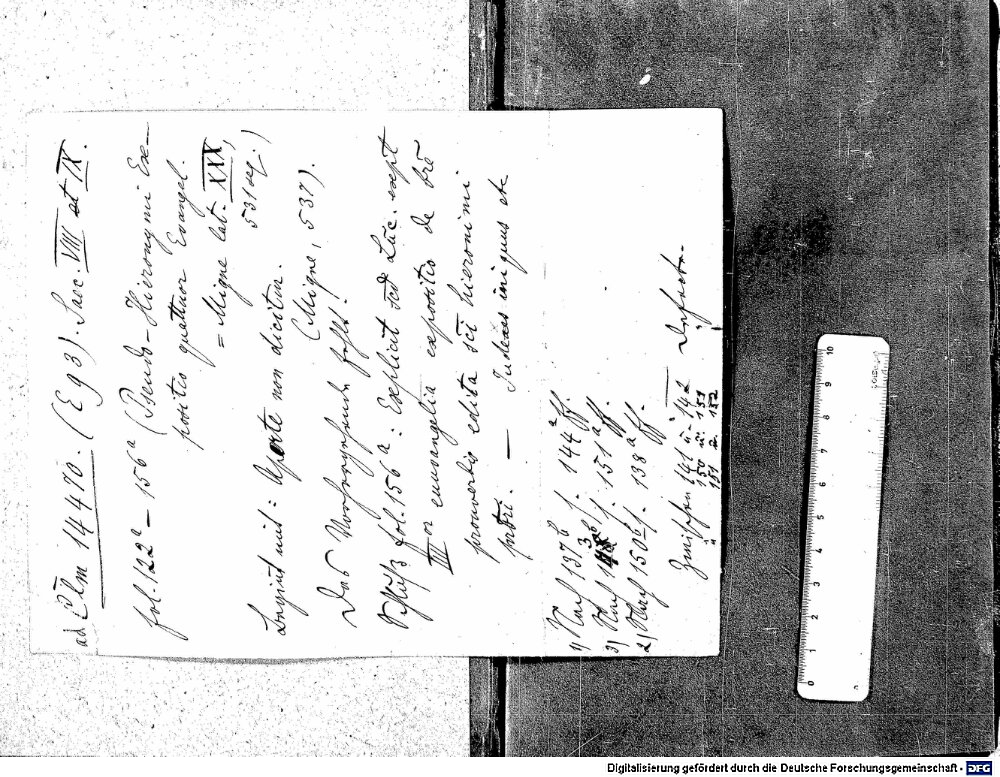 ad Clm 14470. (Eg 3). Saec. VIII et IX.
fol. 122ᵃ – 156ᵃ (Pseudo-Hieronymi Ex-
positio quattuor Evangel.
= Migne lat. XXX,
531 sq.)
Beginnt mit: Aperte non dicitur.
(Migne, 537).
Das Vorhergehende fehlt!
Schluß fol. 156ᵃ: Explicit scd Luc. expt
IIII or euuangelia expositio de brē
prouerbis edita scī hieronimi
prbri. — Iudexas iniquus etc
1) Nach 137ᵇ f. 144ᵃ ff.
3) Nach 143ᵇ f. 151ᵃ ff.
2) Nach 150ᵇ f. 138ᵃ ff.
Zwischen 141 u. 142
" 150 u. 151
" 151 u. 152
Defecte.
0 1 2 3 4 5 6 7 8 9 10
Digitalisierung gefördert durch die Deutsche Forschungsgemeinschaft - DFG